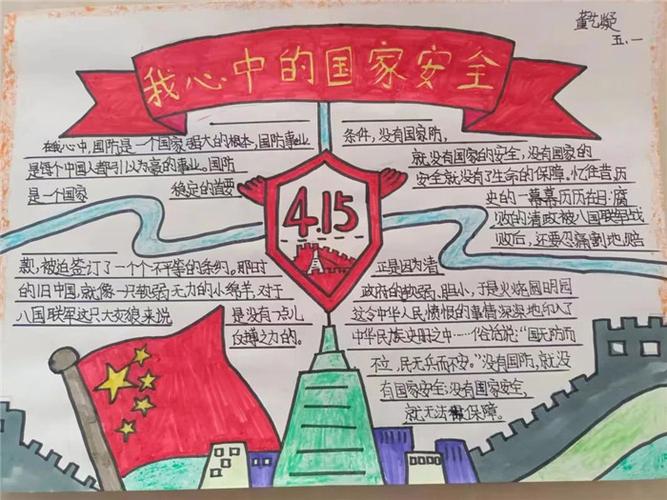 董艺凝
五、一
我心中的国家安全
在我心中,国防是一个国家强大的根本,国防事业
是每个中国人都引以为豪的事业。国防
是一个国家 稳定的首要
条件,没有国家防,
就没有国家的安全,没有国家的
安全就没有了生命的保障。忆往昔,历
史的一幕幕历历在目:腐
败的清政被八国联军战
败后,还要忍痛割地、赔
4.15
款,被迫签订了一个个不平等的条约。那时
的旧中国,就像一只软弱无力的小绵羊,对于
八国联军这只大灰狼来说
是没有一点儿
反搏之力的。
正是因为清
政府的软弱、胆小,于是火烧圆明园
这令中华人民愤恨的事情深深地印入了
中华民族史册之中……俗话说:“国无防而
不立,民无兵而不安。”没有国防,就没
有国家安全;没有国家安全,
就无法保障。